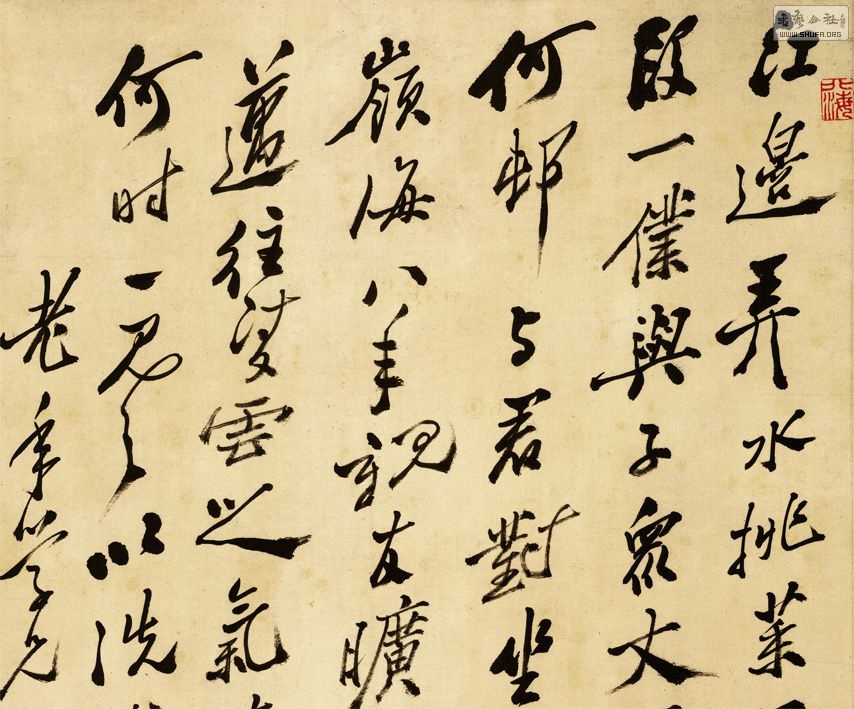 江邊弄水挑菜
段一僕與子眾丈
何邨与君對坐
嶺海八年親友曠
邁往凌雲之氣
何时一見之以洗
老年學兄
藝公社
WWW.SHUFA.ORG